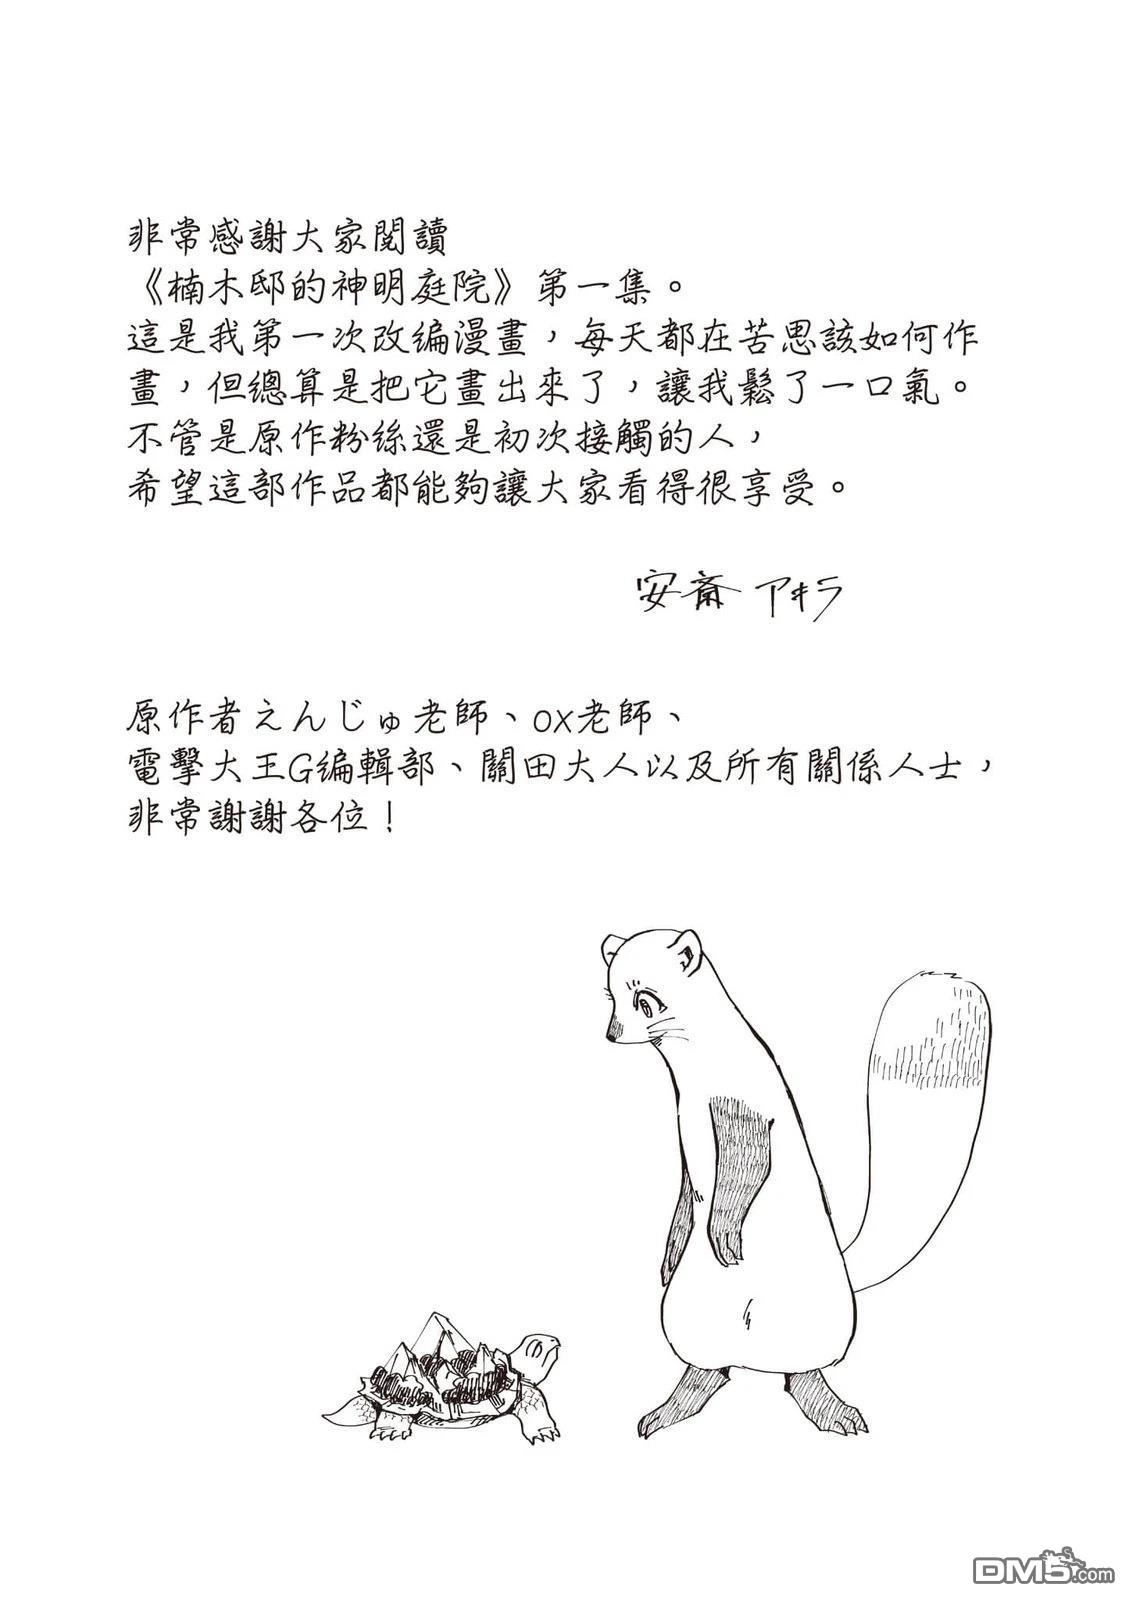 非常感謝大家閱讀
《楠木邸的神明庭院》第一集。
這是我第一次改編漫畫，每天都在苦思該如何作
畫，但總算是把它畫出來了，讓我鬆了一口氣。
不管是原作粉絲還是初次接觸的人，
希望這部作品都能夠讓大家看得很享受。
安斎 アキラ
原作者えんじゅ老師、ox老師、
電擊大王G編輯部、關田大人以及所有關係人士，
非常謝謝各位！
DM5.com